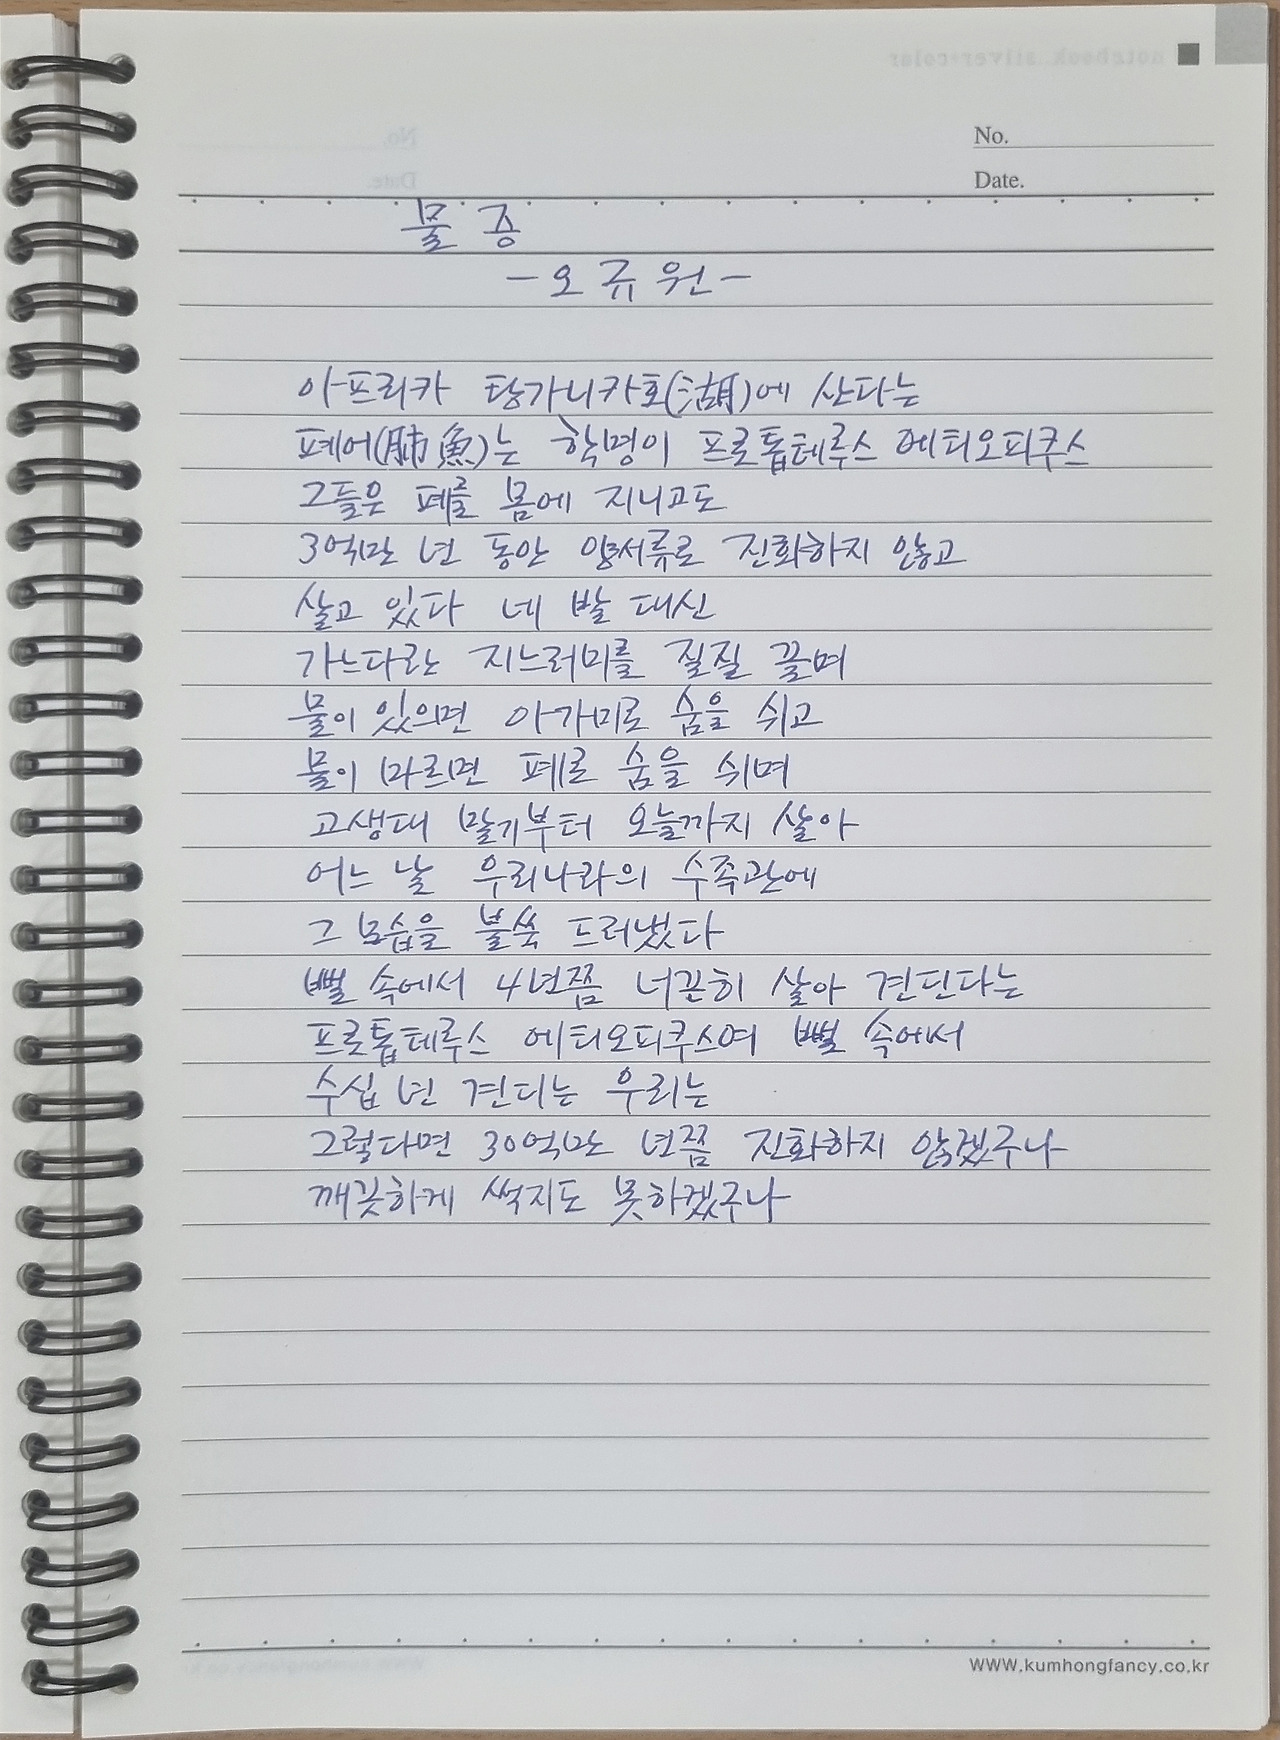 No.
Date.
물증
-오규원-
아프리카 탕가니카호(湖)에 산다는
폐어(肺魚)는 학명이 프로톱테루스 에티오피쿠스
그들은 폐를 몸에 지니고도
3억만 년 동안 양서류로 진화하지 않고
살고 있다 네 발 대신
가느다란 지느러미를 질질 끌며
물이 있으면 아가미로 숨을 쉬고
물이 마르면 폐로 숨을 쉬며
고생대 말기부터 오늘까지 살아
어느 날 우리나라의 수족관에
그 모습을 불쑥 드러냈다
뻘 속에서 4년쯤 너끈히 살아 견딘다는
프로톱테루스 에티오피쿠스여 뻘 속에서
수십 년 견디는 우리는
그렇다면 30억만 년쯤 진화하지 않겠구나
깨끗하게 썩지도 못하겠구나
www.kumhongfancy.co.kr